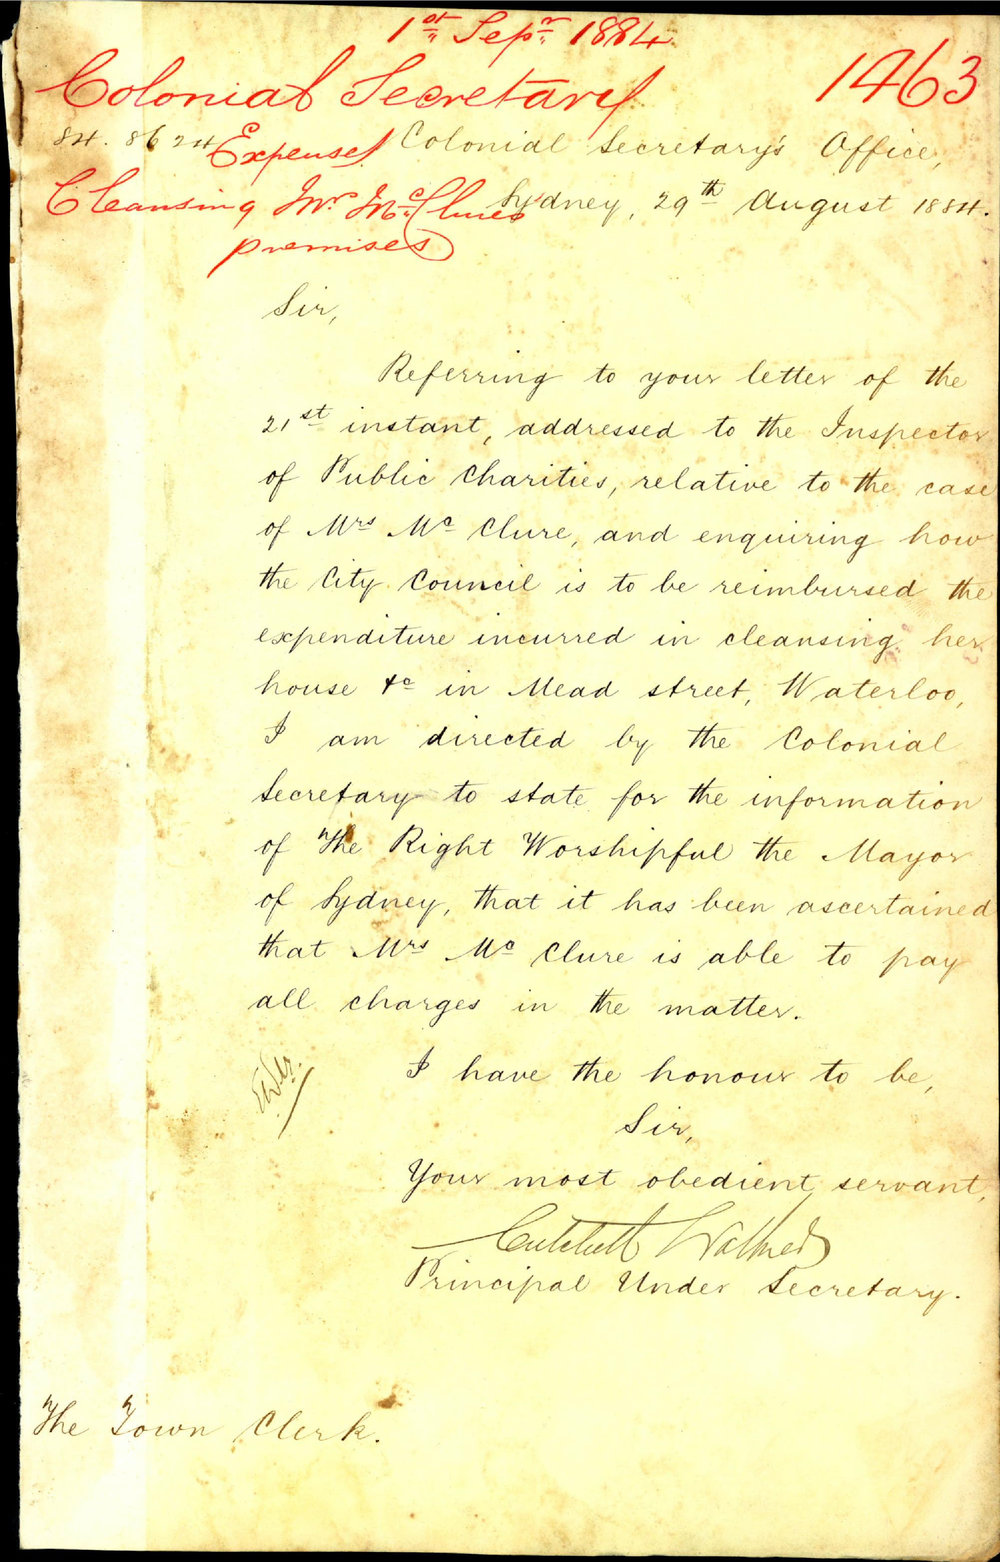 1st Sepr 1884
Colonial Secretary
1463
84. 8624
Expense
Cleansing Mrs McClures
premises
Colonial Secretary's Office,
Sydney, 29th August 1884.
Sir,
Referring to your letter of the
21st instant, addressed to the Inspector
of Public Charities, relative to the case
of Mrs Mc Clure, and enquiring how
the City Council is to be reimbursed the
expenditure incurred in cleansing her
house &c in Mead street, Waterloo,
I am directed by the Colonial
Secretary to state for the information
of The Right Worshipful the Mayor
of Sydney, that it has been ascertained
that Mrs Mc Clure is able to pay
all charges in the matter.
I have the honour to be,
Sir,
Your most obedient servant,
Critchett Walker
Principal Under Secretary.
The Town Clerk.